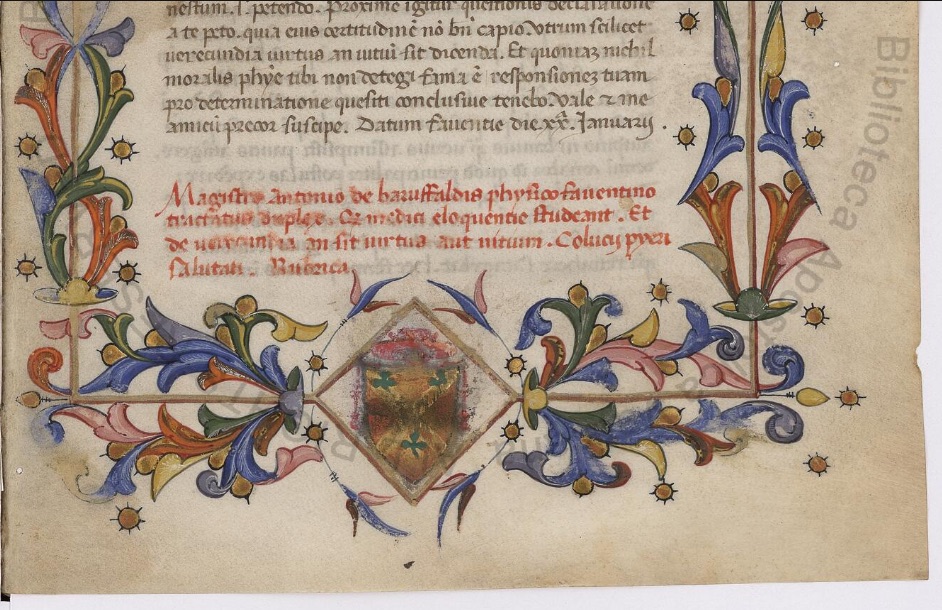 nestum. l. petendo. Proxime igitur questionis declaratione
a te peto. quia eius certitudinē nō bn̄ capio Utrum scilicet
verecundia virtus an vitiū sit dicenda. Et quoniaz nichil
moralis phy̅e tibi non detegi fama ē responsionez tuam
pro determinatione quesiti conclusive tenebo. Vale ⁊ me
amicū precor suscipe. Datum faventie die xx̊. Januarij.
Magistro Antonio de baruffaldis physico faventino
tractatus duplex. Q̄ medici eloquentie studeant. Et
de verecundia an sit virtus aut vitium. Colucij pyeri
salutati. Rubrica
Biblioteca Apos